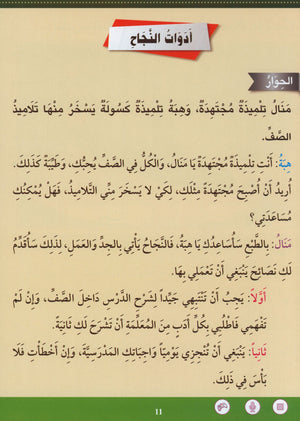 أَدَوَاتُ النَّجَاحِ
الحِوَارُ
مَنَالُ تِلْمِيذَةٌ مُجْتَهِدَةٌ، وَهِبَةُ تِلْمِيذَةٌ كَسُولَةٌ يَسْخَرُ مِنْهَا تَلَامِيذُ
الصَّفِّ.
هِبَةُ: أَنْتِ تِلْمِيذَةٌ مُجْتَهِدَةٌ يَا مَنَالُ، وَالْكُلُّ فِي الصَّفِّ يُحِبُّكِ، وَطَيِّبَةٌ كَذَلِكَ.
أُرِيدُ أَنْ أُصْبِحَ مُجْتَهِدَةً مِثْلَكِ، لِكَيْ لَا يَسْخَرَ مِنِّي التَّلَامِيذُ، فَهَلْ يُمْكِنُكِ
مُسَاعَدَتِي؟
مَنَالُ: بِالطَّبْعِ سَأُسَاعِدُكِ يَا هِبَةُ، فَالنَّجَاحُ يَأْتِي بِالْجِدِّ وَالْعَمَلِ، لِذَلِكَ سَأُقَدِّمُ
لَكِ نَصَائِحَ يَنْبَغِي أَنْ تَعْمَلِي بِهَا.
أَوَّلاً: يَجِبُ أَنْ تَنْتَبِهِي جَيِّداً لِشَرْحِ الدَّرْسِ دَاخِلَ الصَّفِّ، وَإِنْ لَمْ
تَفْهَمِي فَاطْلُبِي بِكُلِّ أَدَبٍ مِنَ الْمُعَلِّمَةِ أَنْ تَشْرَحَ لَكِ ثَانِيَةً.
ثَانِياً: يَنْبَغِي أَنْ تُنْجِزِي يَوْمِيّاً وَاجِبَاتِكِ الْمَدْرَسِيَّةَ، وَإِنْ أَخْطَأْتِ فَلَا
بَأْسَ فِي ذَلِكَ.
11